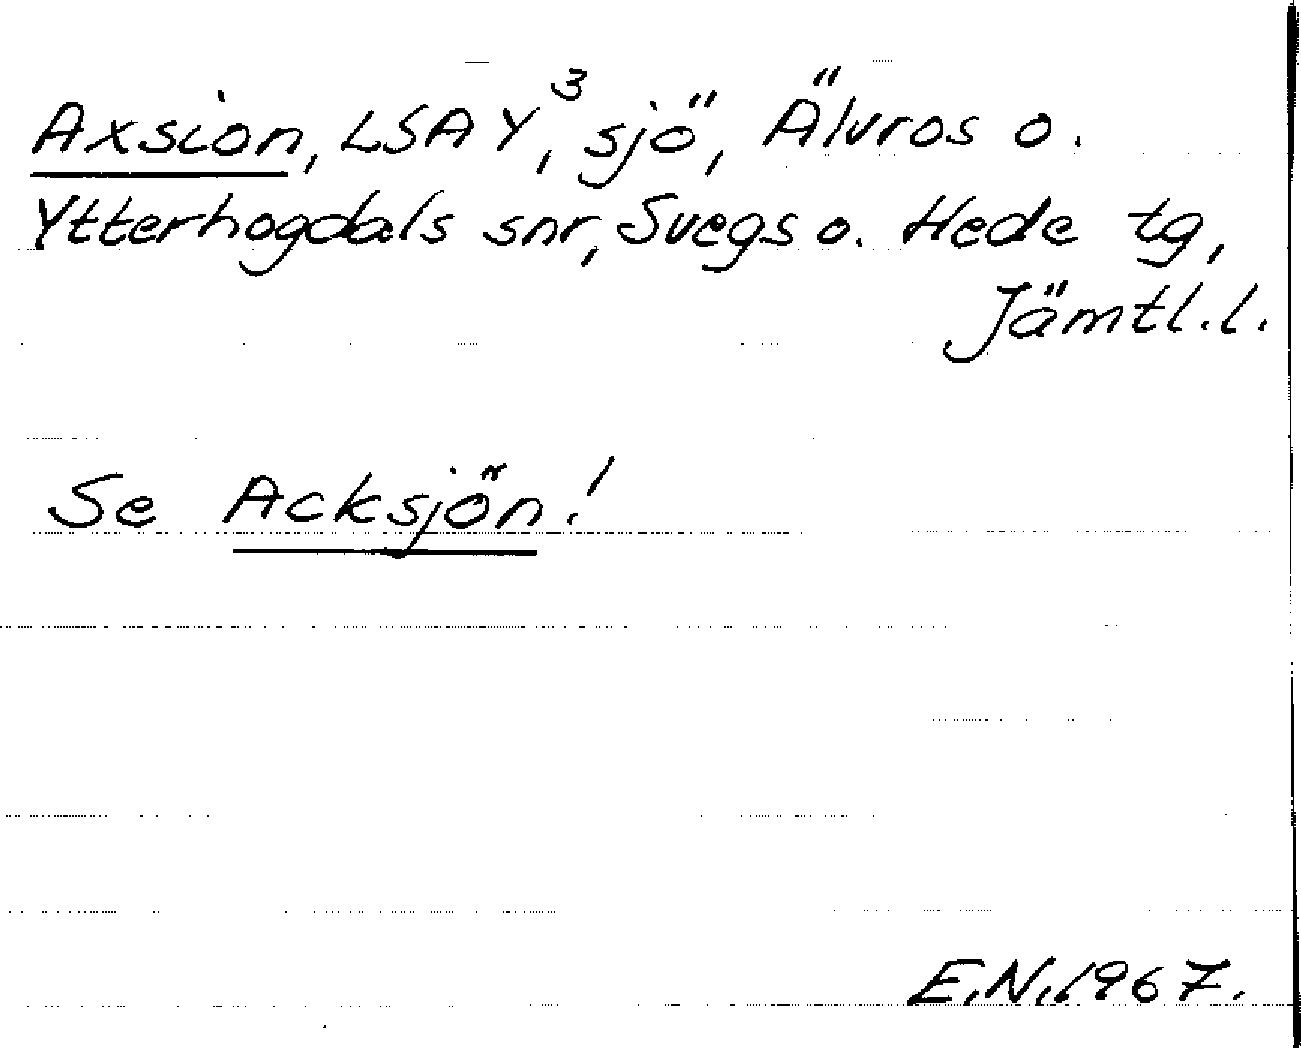 Axsion, LSA Y³, sjö, Älvros o.
Ytterhogdals snr, Svegs o. Hede tg,
Jämtl.l.
Se Acksjön!
E.N. 1967.